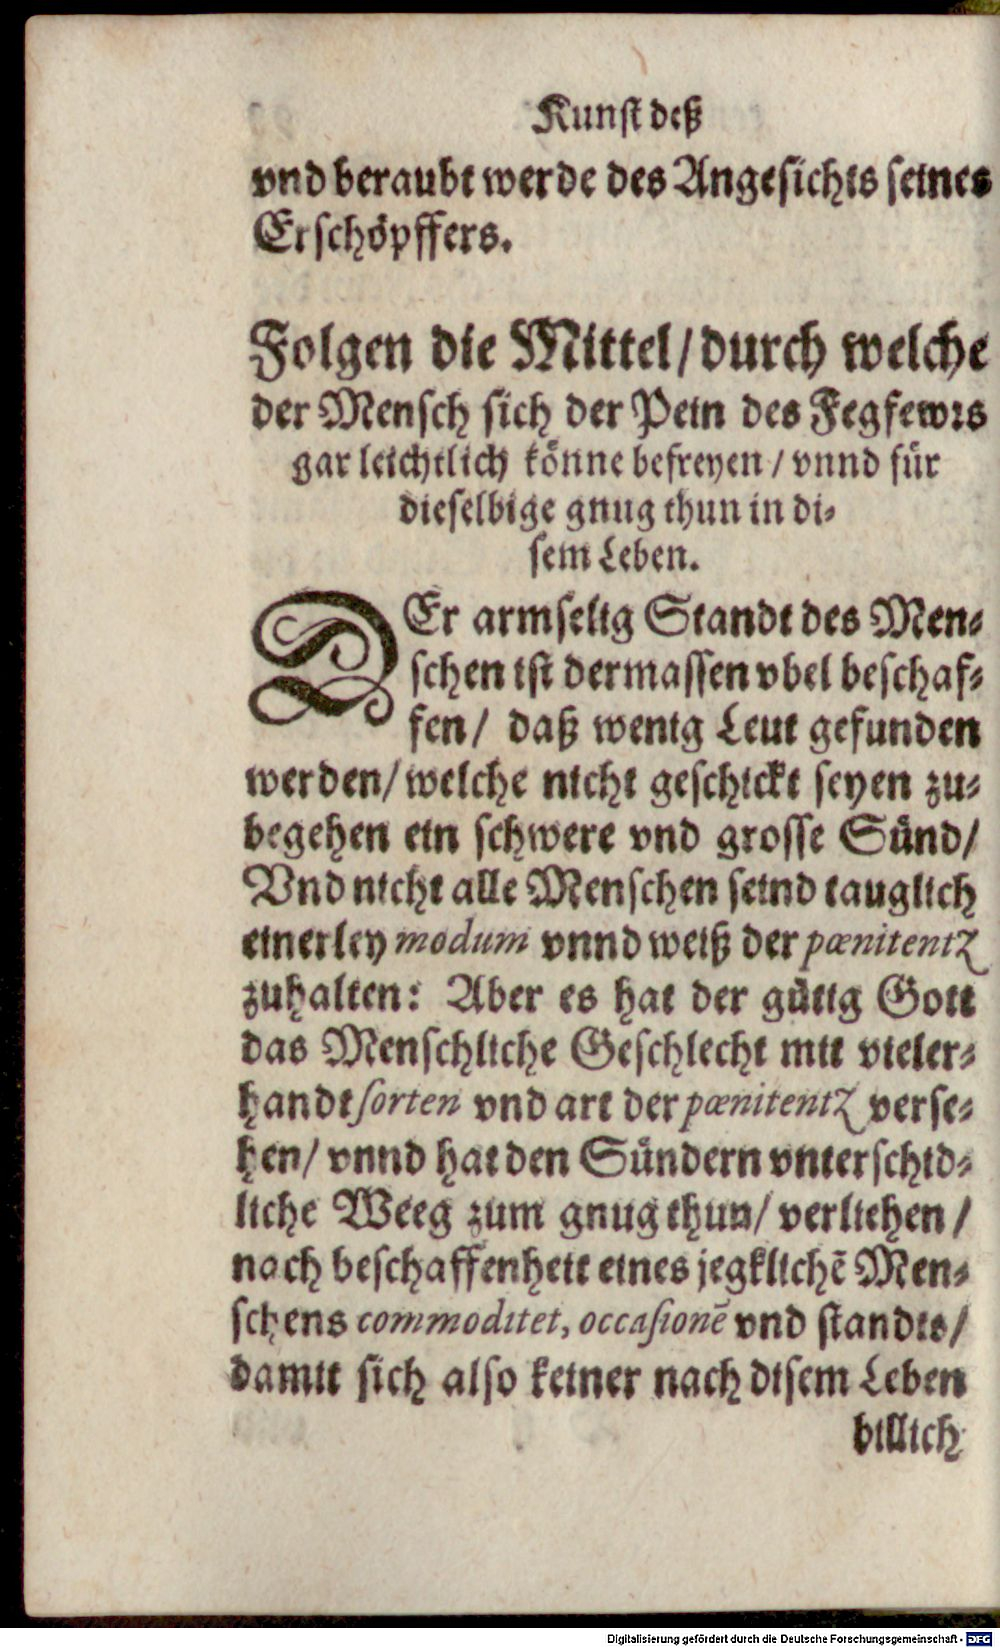 Kunst deß
vnd beraubt werde des Angesichts seines
Erschöpffers.
Folgen die Mittel/ durch welche
der Mensch sich der Pein des Fegfewrs
gar leichtlich könne befreyen / vnnd für
dieselbige gnug thun in di-
sem Leben.
DEr armselig Standt des Men-
schen ist dermassen vbel beschaf-
fen/ daß wenig Leut gefunden
werden/ welche nicht geschickt seyen zu-
begehen ein schwere vnd grosse Sünd/
Vnd nicht alle Menschen seind tauglich
einerley modum vnnd weiß der pœnitentz
zuhalten: Aber es hat der gütig Gott
das Menschliche Geschlecht mit vieler-
handt sorten vnd art der pœnitentz verse-
hen/ vnnd hat den Sündern vnterschid-
liche Weeg zum gnug thun/ verliehen /
nach beschaffenheit eines jegklichē Men-
schens commoditet, occasionē vnd standts/
damit sich also keiner nach disem Leben
billich
Digitalisierung gefördert durch die Deutsche Forschungsgemeinschaft - DFG